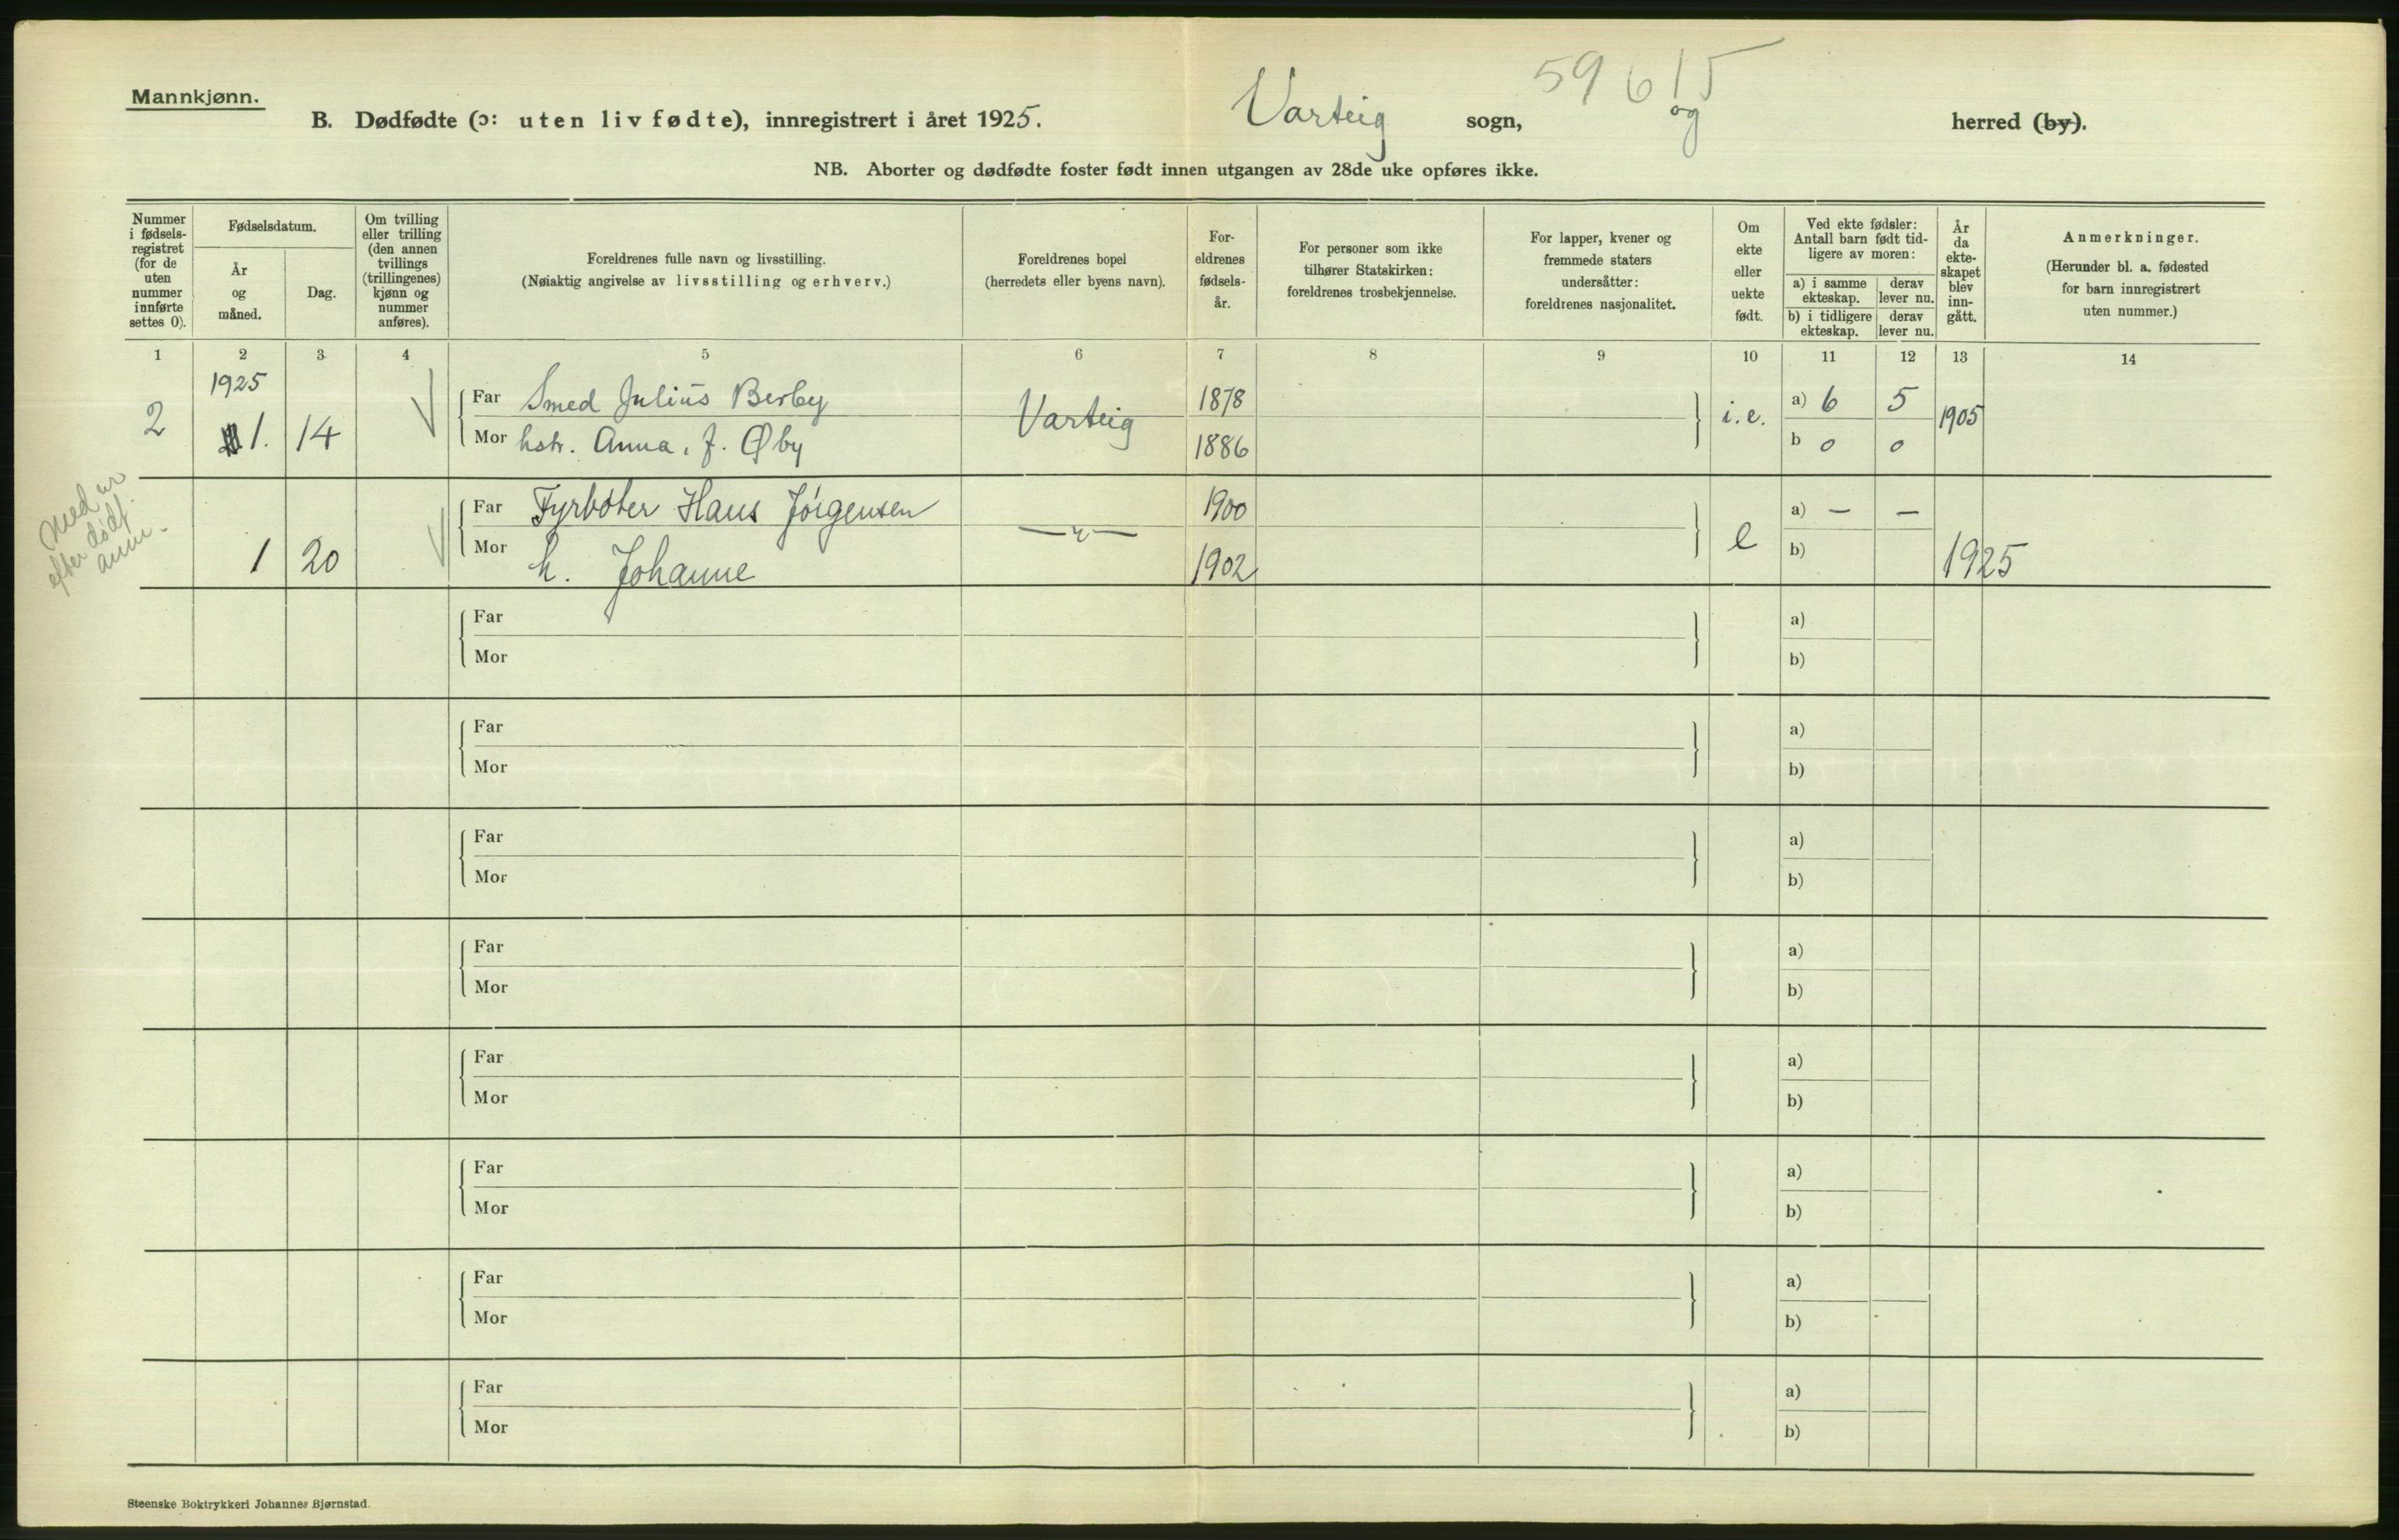 Mannkjønn.
59 615
B. Dødfødte (ɔ: uten liv fødte), innregistrert i året 1925. Varteig sogn, og herred (by).
NB. Aborter og dødfødte foster født innen utgangen av 28de uke opføres ikke.
Nummer i fødsels-registret (for de uten nummer innførte settes 0).
Fødselsdatum.
År og måned.
Dag.
Om tvilling eller trilling (den annen tvillings (trillingenes) kjønn og nummer anføres).
Foreldrenes fulle navn og livsstilling.
(Nøiaktig angivelse av livsstilling og erhverv.)
Foreldrenes bopel
(herredets eller byens navn).
For-eldrenes fødsels-år.
For personer som ikke tilhører Statskirken: foreldrenes trosbekjennelse.
For lapper, kvener og fremmede staters undersåtter: foreldrenes nasjonalitet.
Om ekte eller uekte født.
Ved ekte fødsler: Antall barn født tid-ligere av moren:
a) i samme ekteskap.
derav lever nu.
b) i tidligere ekteskap.
derav lever nu.
År da ekte-skapet blev inn-gått.
Anmerkninger.
(Herunder bl. a. fødested for barn innregistrert uten nummer.)
1 2 3 4 5 6 7 8 9 10 11 12 13 14
1925
Far Smed Julius Berby 1878 a) 6 5
2 1. 14 Varteig i.e. 1905
Mor hstr. Anna. J. Øby 1886 b 0 0
Med er efter dødf. anm.
Far Fyrbøter Hans Jörgensen —"— 1900 a) — —
1 20 e 1925
Mor h. Johanne 1902 b)
Far a)
Mor b)
Far a)
Mor b)
Far a)
Mor b)
Far a)
Mor b)
Far a)
Mor b)
Far a)
Mor b)
Far a)
Mor b)
Far a)
Mor b)
Steenske Boktrykkeri Johannes Bjørnstad.